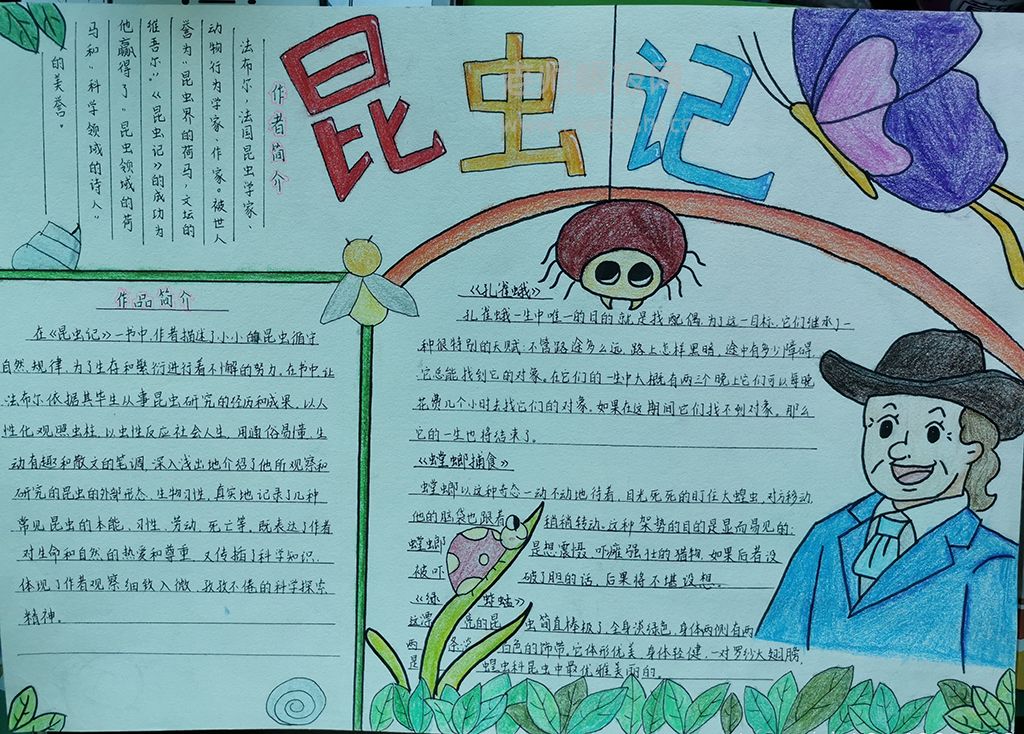 昆虫记
作者简介
法布尔,法国昆虫学家、
动物行为学家、作家。被世人
誉为“昆虫界的荷马,文坛的
维吾尔”。《昆虫记》的成功为
他赢得了“昆虫领域的荷
马和“科学领域的诗人”
的美誉。
作品简介
在《昆虫记》一书中,作者描述了小小的昆虫恪守
自然规律,为了生存和繁衍进行着不懈的努力。在书中让
法布尔依据其毕生从事昆虫研究的经历和成果,以人
性化观照虫柱,以虫性反应社会人生,用通俗易懂、生
动有趣和散文的笔调,深入浅出地介绍了他所观察和
研究的昆虫的外部形态、生物习性,真实地记录了几种
常见昆虫的本能、习性、劳动、死亡等,既表达了作者
对生命和自然的热爱和尊重,又传播了科学知识,
体现了作者观察细致入微、孜孜不倦的科学探索
精神。
《孔雀蛾》
孔雀蛾一生中唯一的目的就是找配偶,为了这一目标,它们继承了一
种很特别的天赋:不管路途多么远,路上怎样黑暗,途中有多少障碍,
它总能找到它的对象。在它们的一生中大概有两三个晚上它们可以每晚
花费几个小时去找它们的对象。如果在这期间它们找不到对象,那么
它的一生也将结束了。
《螳螂捕食》
螳螂以这种奇态一动不动地待着,目光死死的盯住大蝗虫,对方移动,
他的脑袋也跟着 稍稍转动。这种架势的目的是显而易见的:
螳螂 是想震慑、吓瘫强壮的猎物,如果后者没
被吓 破了胆的话,后果将不堪设想。
《绿 蚱蜢》
这漂 亮的昆 虫简直棒极了,全身淡绿色,身体两侧有两
两 条淡 白色的饰带。它体形优美,身体轻健,一对罗纱大翅膀,
是 蝗虫科昆虫中最优雅美丽的。